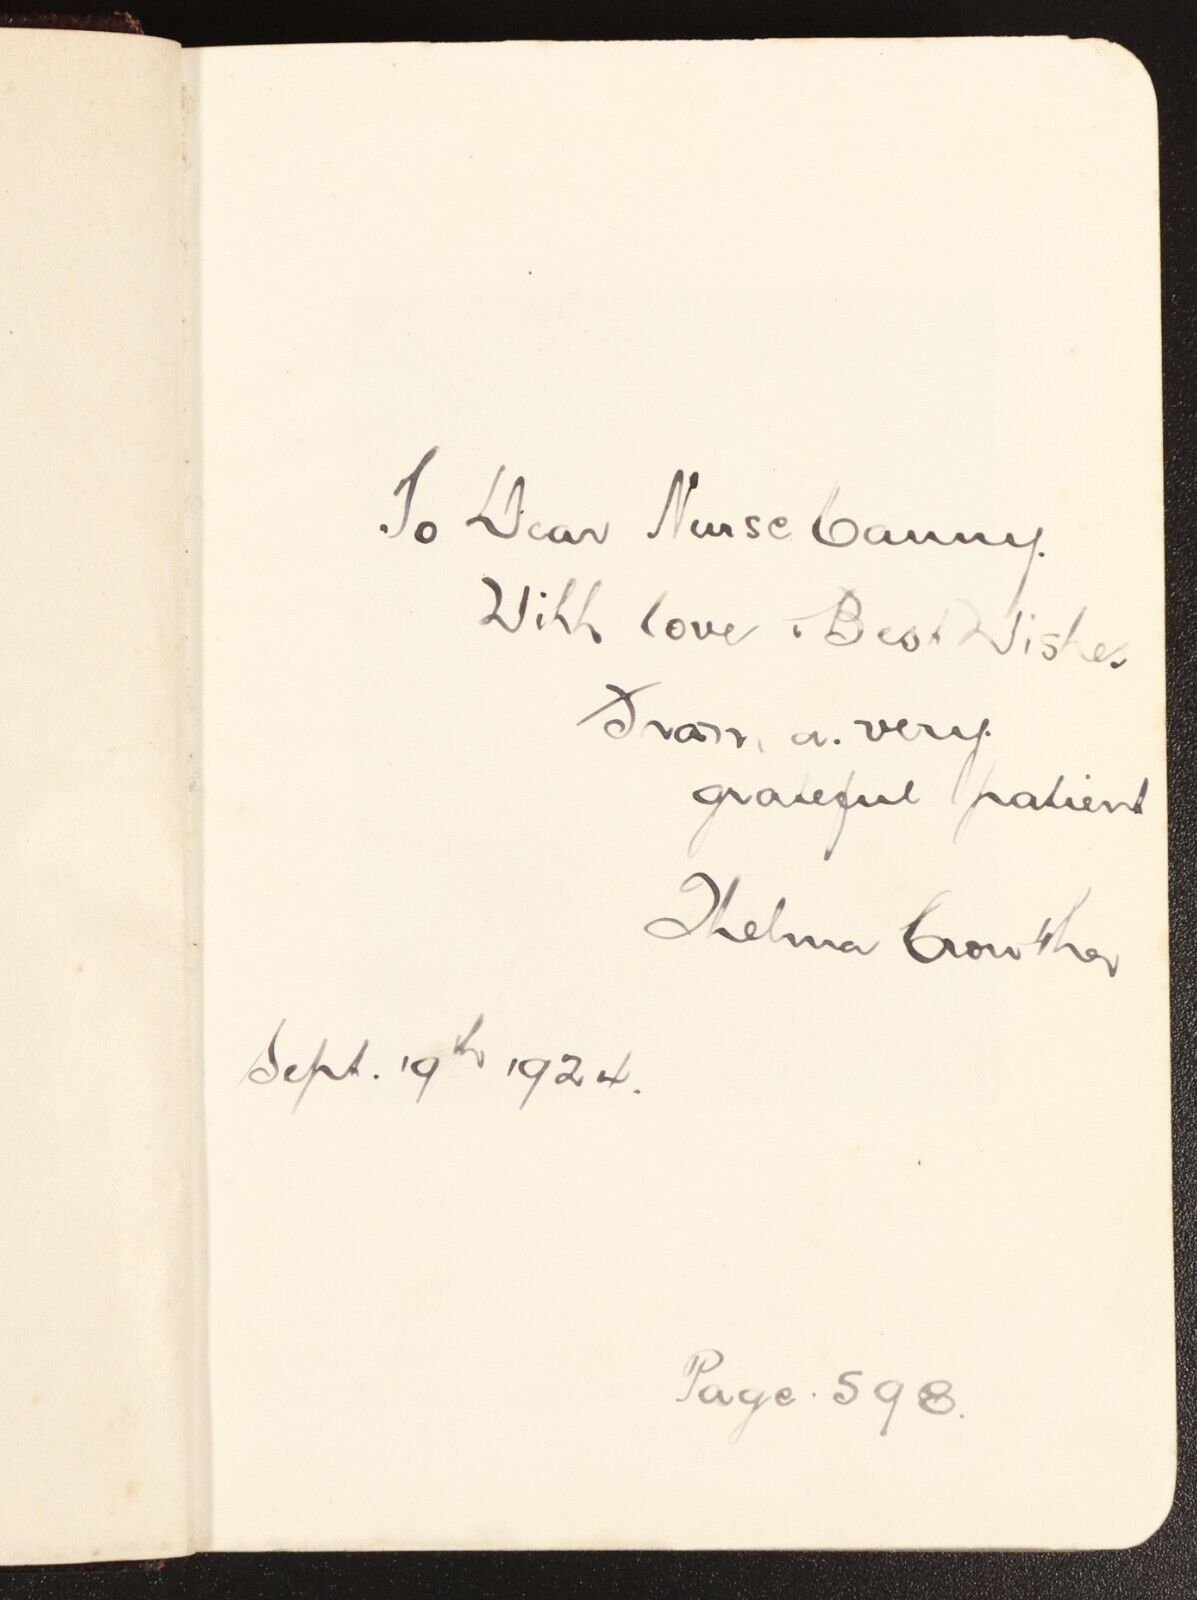 To Dear Nurse Canny.
With love & Best Wishes
From a very
grateful patient
Thelma Crowther
Sept. 19th 1924.
Page. 598.